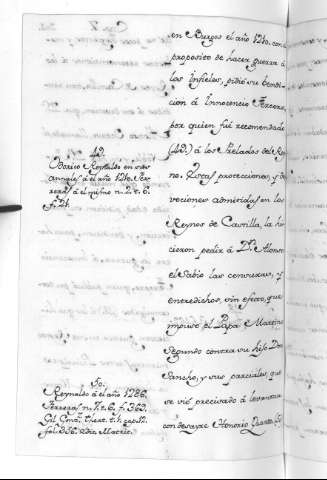 en Burgos el año 1210. con el
proposito de hacer guerra à
los Infieles, pidió su bendi-
cion à Innocencio Tercero,
por quien fué recomendado
(49.) à los Prelados del Rey-
no. Estas protecciones, y de-
vociones admitidas en los
Reynos de Castilla, la hi-
cieron pedir à Dn. Alonso
el Sabio las censuras, y
entredichos, sin efecto, que
impuso el Papa Martino
Segundo contra su hijo Don
Sancho, y sus parciales, que
se vió precisado à levantar
con desayre Honorio Quarto. (50)
49.
Odorico Reynaldo en sus
Annales à el año 1210. Fer-
reras à el mismo n. 2. t. 6.
50.
Reynaldo à el año 1286.
Ferreras n. 7. t. 6. f. 363.